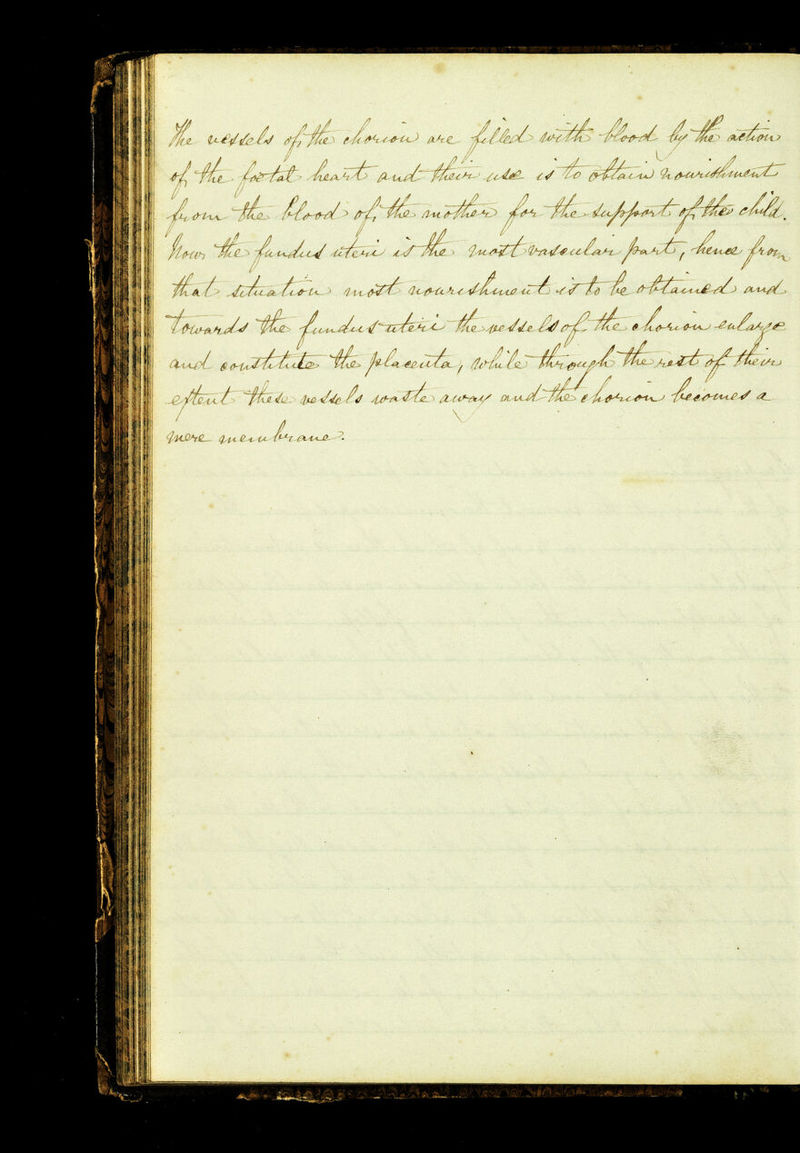 The vessels of the chorion are filled with blood by the action
of the fœtal heart and their use is to obtain nourishment
from the blood of the mother for the support of the child.
Now the fundus uteri is the most vascular part, hence from
that situation most nourishment is to be obtained and
towards the fundus uteri the vessels of the chorion enlarge
and constitute the placenta, while through the rest of their
extent these vessels waste away and the chorion becomes a
mere membrane.